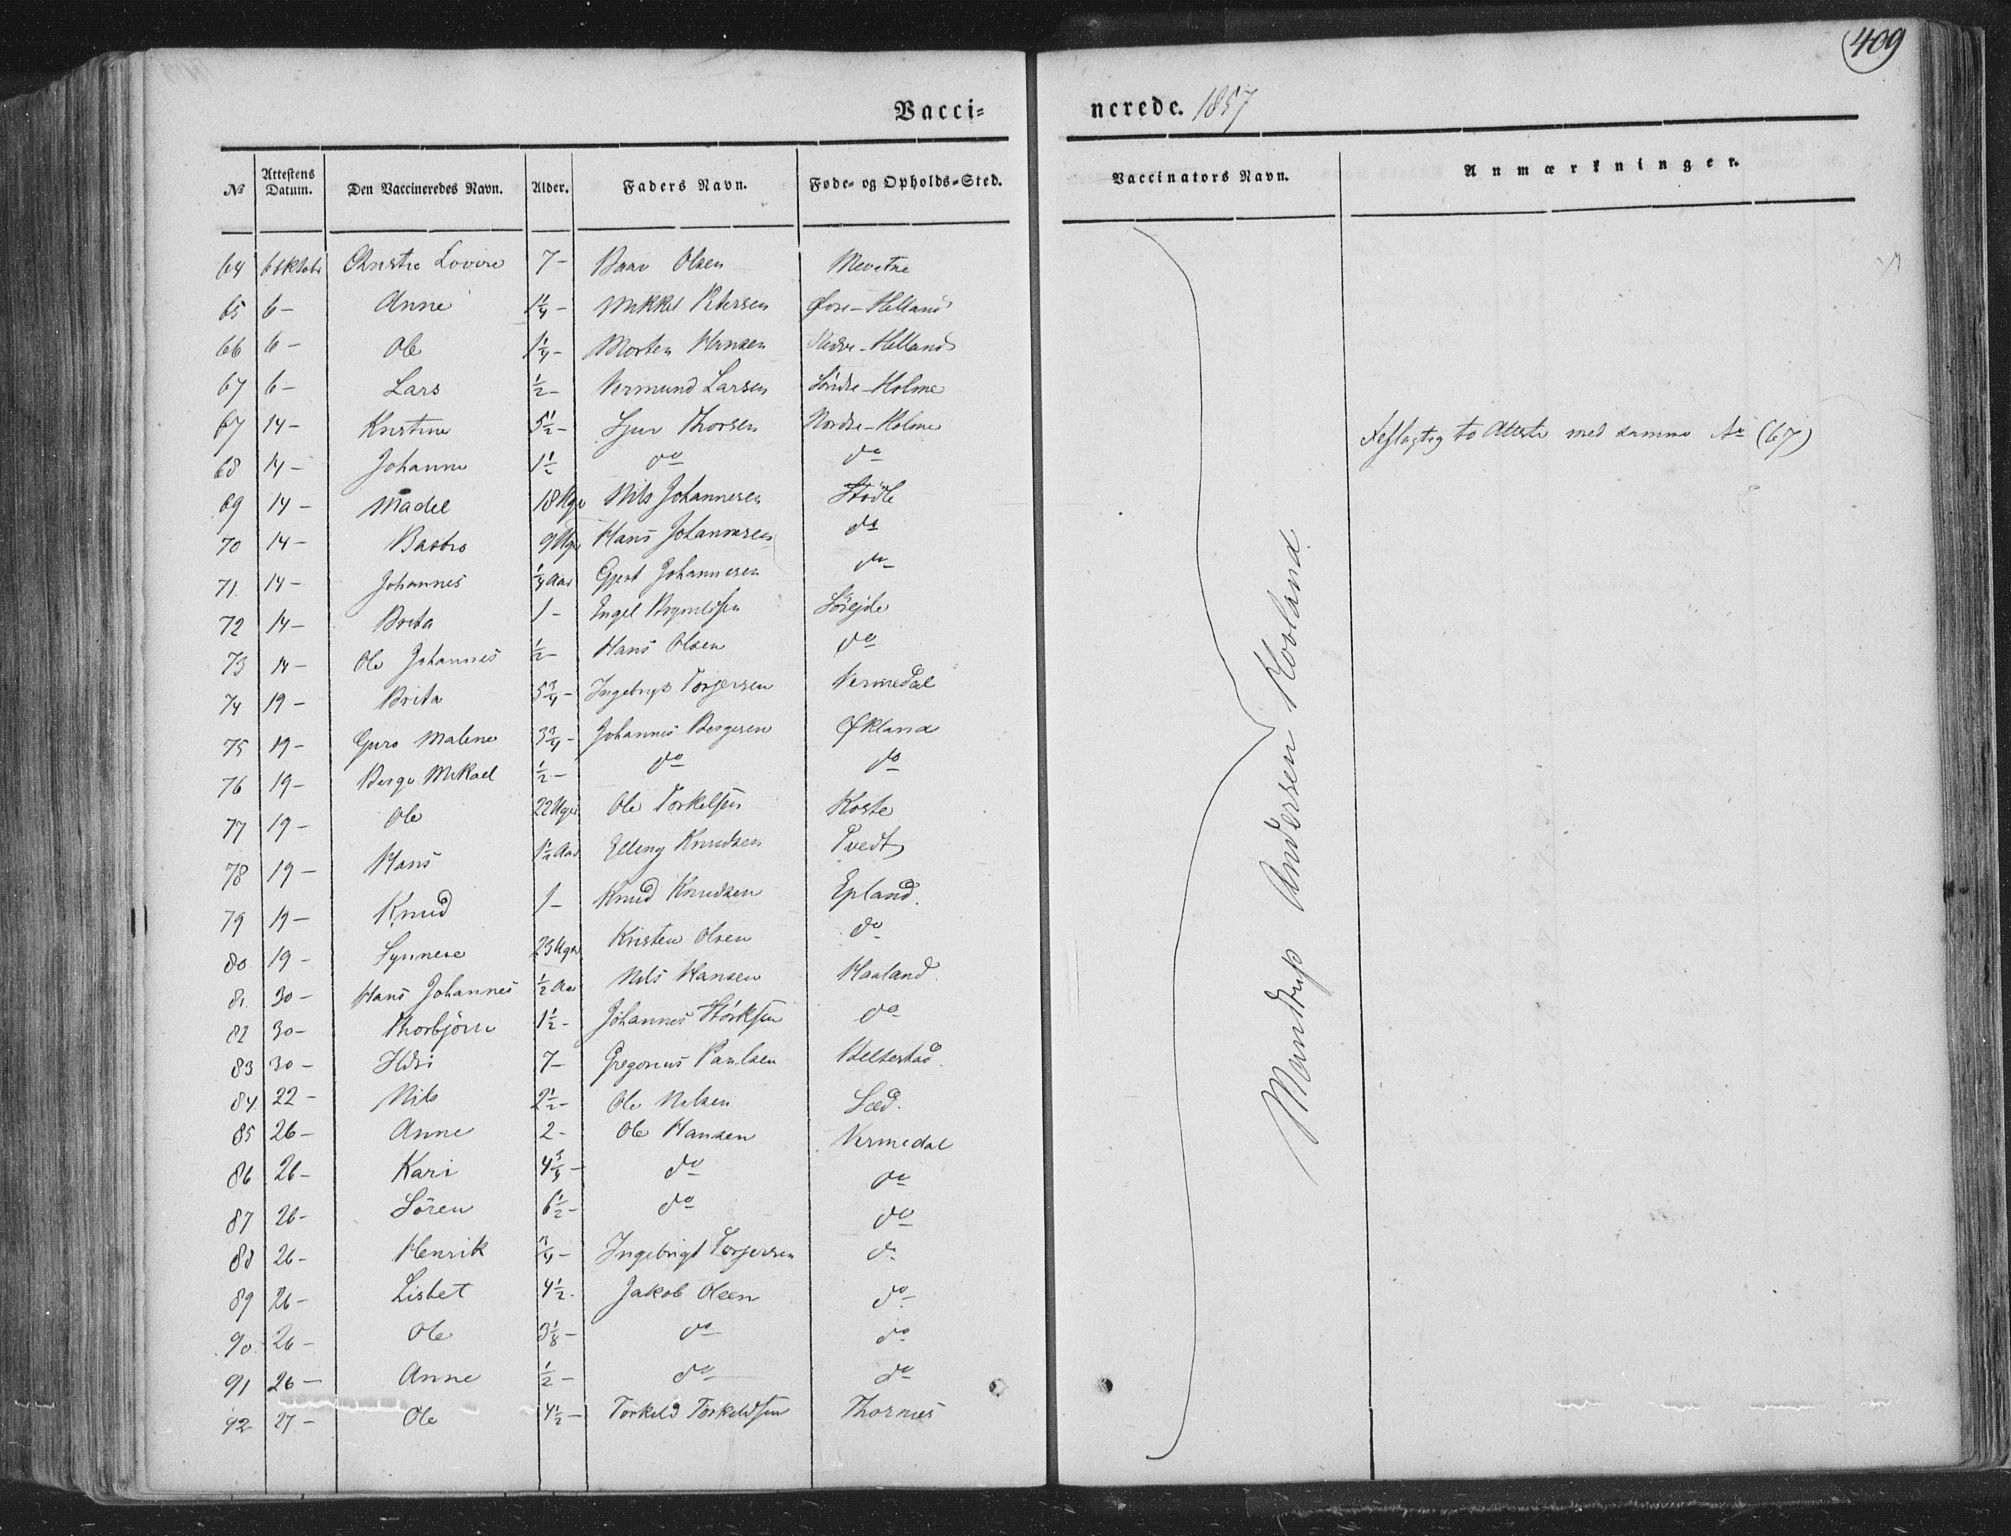 409
Vacci- nerede. 1857
No Attestens Datum. Den Vaccineredes Navn. Alder. Faders Navn. Føde- og Opholds-Sted. Vaccinators Navn. Anmærkninger.
64 6 Oktober 7 - Olsen
65 6 - Anne 1 1/4 - Mikkel Petersen Øvre-Helland
66 6 - Ole 1 1/4 - Morten Hansen Nedre-Helland
67 6 - Lars 1/2 - Vermund Larsen Söndre-Holme
67 14 - Kristine 5 1/2 - Sjur Thorsen Nordre-Holme to Atteste med samme No (67)
68 14 - Johanne 1 1/2 do do
69 14 - Madel 18 Uger Nils Johannesen Stödle
70 14 - Bastro 9 Uger Hans Johannesen do
71. 14 - Johannes 1/4 Aar Gjert Johannesen do
72 14 - Brita 1 - Engel Brynildsen Sörejde
73 14 - Ole Johannes 1/2 - Hans Olsen do
74 19 - Brita 5 3/4 - Ingebrigt Torjersen Vermedal
75 19 - Guro Malene 3 3/4 - Johannes Bergesen Økland
76 19 - Berge Mikael 1/2 - do do
77 19 - Ole 22 Uger Ole Torkelsen Koste
78 19 - Hans 1 1/2 Aar Elling Knudsen Tvedt
79 19 - Knud 1 - Knud Knudsen Epland.
80 19 - Synneve 23 Uger Kristen Olsen do
81. 30 - Hans Johannes 1/2 Aar Nils Hansen Haaland.
82 30 - Thorbjörn 1 1/2 - Johannes Störksen do
83 30 - 7 - Gregorius Paulsen Beltestad.
84 22 - Nils 2 1/2 - Ole Nilsen Sæd.
85 26 - Anne 2 - Ole Hansen Vermedal
86 26 - Kari 4 3/4 - do do
87 26 - Sören 6 1/2 - do do
88 26 - Henrik 3/4 - Ingebrigt Torjersen do
89 26 - Lisbet 4 1/2. Jakob Olsen do
90 26 - Ole 3 1/8 - do do
91 26 - Anne 1/2 - do do
92 27 - Ole 4 1/2 - Torkild Torkildsen Thornes
Mandrup Andersen Hovland